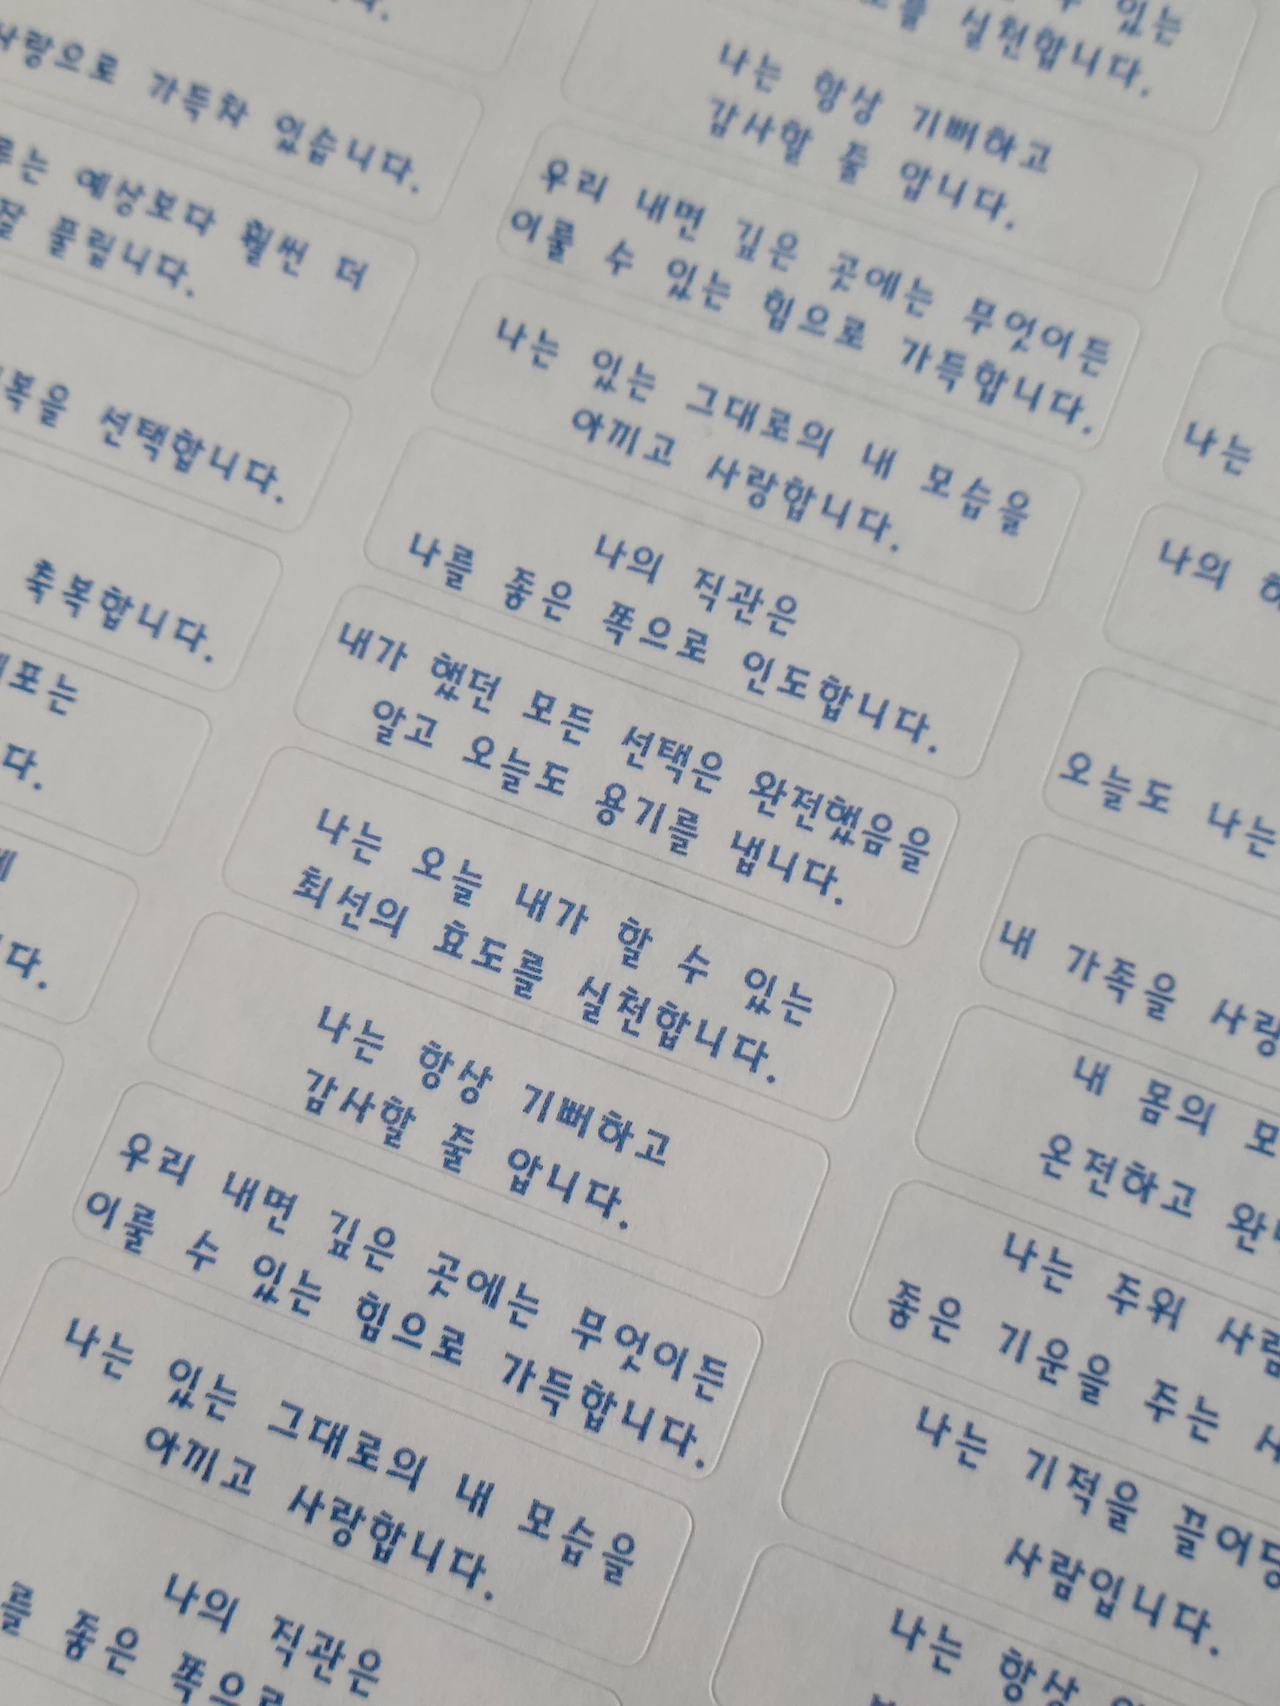 사랑으로 가득차 있습니다.
예상보다 훨씬 더
풀립니다.
선택합니다.
축복합니다.
수 있는
실천합니다.
나는 항상 기뻐하고
감사할 줄 압니다.
우리 내면 깊은 곳에는 무엇이든
이룰 수 있는 힘으로 가득합니다.
나는 있는 그대로의 내 모습을
아끼고 사랑합니다.
나의 직관은
나를 좋은 쪽으로 인도합니다.
내가 했던 모든 선택은 완전했음을
알고 오늘도 용기를 냅니다.
나는 오늘 내가 할 수 있는
최선의 효도를 실천합니다.
나는 항상 기뻐하고
감사할 줄 압니다.
우리 내면 깊은 곳에는 무엇이든
이룰 수 있는 힘으로 가득합니다.
나는 있는 그대로의 내 모습을
아끼고 사랑합니다.
나의 직관은
좋은 쪽으로
나는
나의
오늘도 나는
내 가족을
내 몸의
온전하고
나는 주위
좋은 기운을 주는
나는 기적을
사람입니다.
나는 항상